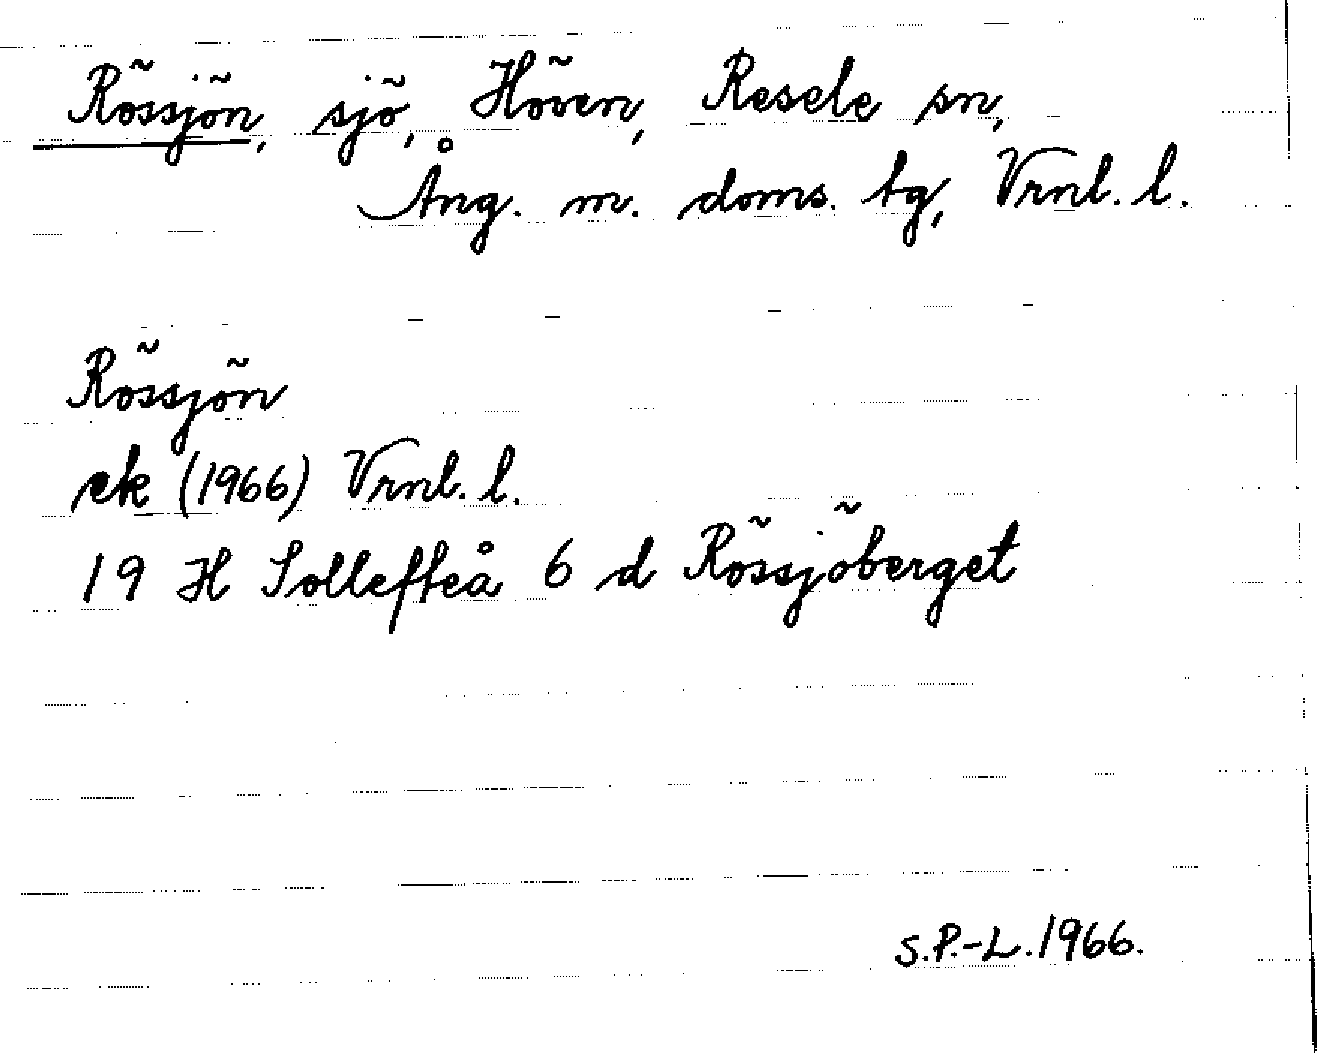 Rössjön, sjö, Höven, Resele sn,
Ång. m. doms. tg, Vrnl. l.
Rössjön
ek (1966) Vrnl. l.
19 H Sollefteå 6 d Rössjöberget
S.P.-L. 1966.